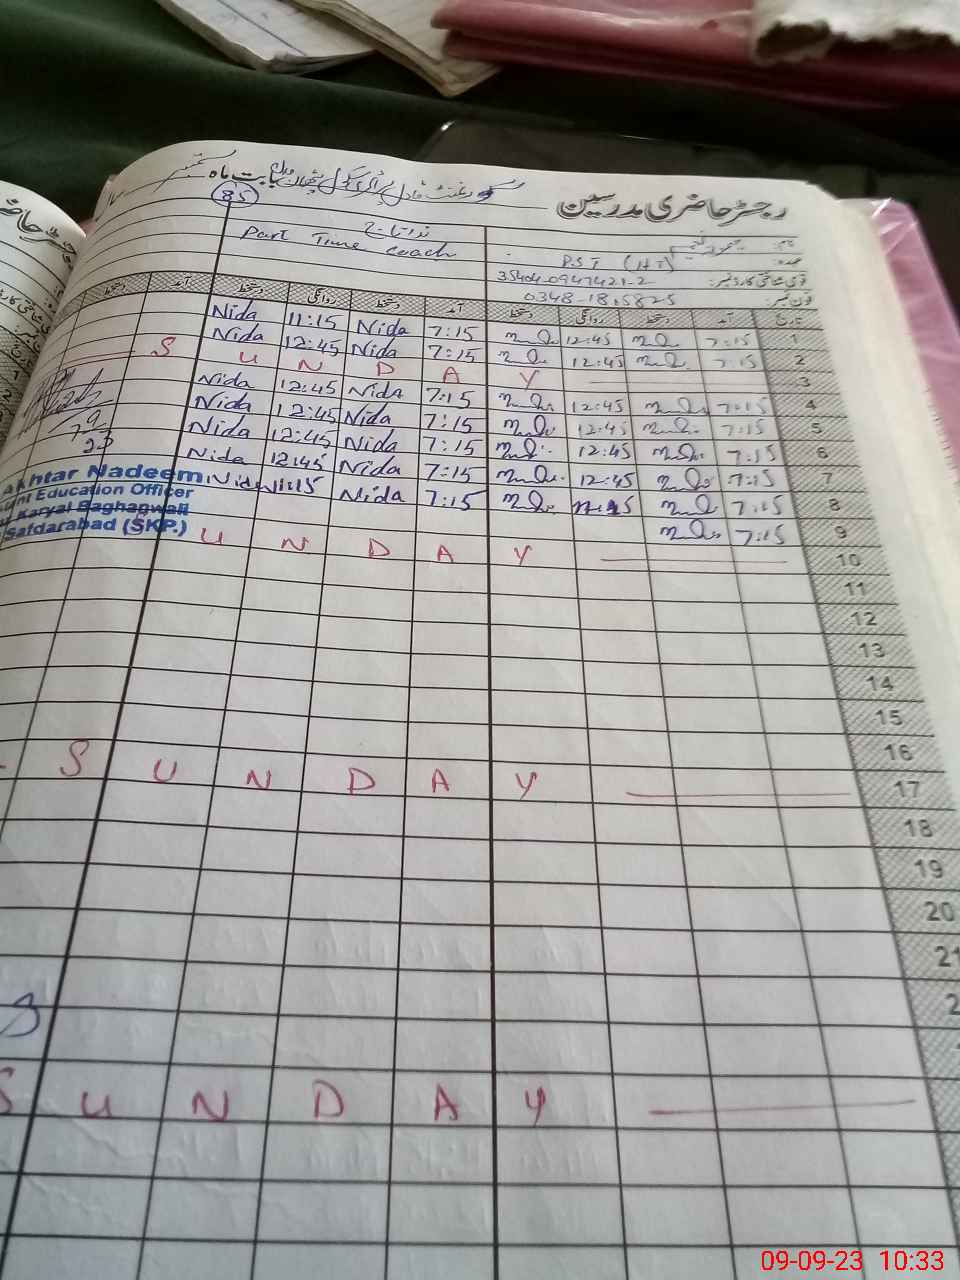 رجسٹر حاضری مدرسین
بابت ماہ ستمبر
85
نام:
عہدہ: P.S.T (HT)
قومی شناختی کارڈ نمبر: 35404-0947421-2
فون نمبر: 0348-1815825
Part Time coach
تاریخ آمد دستخط روانگی دستخط آمد دستخط روانگی دستخط آمد دستخط
1 7:15 12:45 7:15 Nida 11:15 Nida
2 7:15 12:45 7:15 Nida 12:45 Nida
3 S U N D A Y
4 7:15 12:45 7:15 Nida 12:45 Nida
5 7:15 12:45 7:15 Nida 12:45 Nida
6 7:15 12:45 7:15 Nida 12:45 Nida
7 7:15 12:45 7:15 Nida 12:45 Nida
8 7:15 7:15 Nida 11:15 Nida
9 7:15
10 U N D A Y
11
12
13
14
15
16
17 S U N D A Y
18
19
20
21
2
S U N D A Y
7/9
23
Akhtar Nadeem
Education Officer
Karyal Baghagwali
Safdarabad (SKP.)
09-09-23 10:33